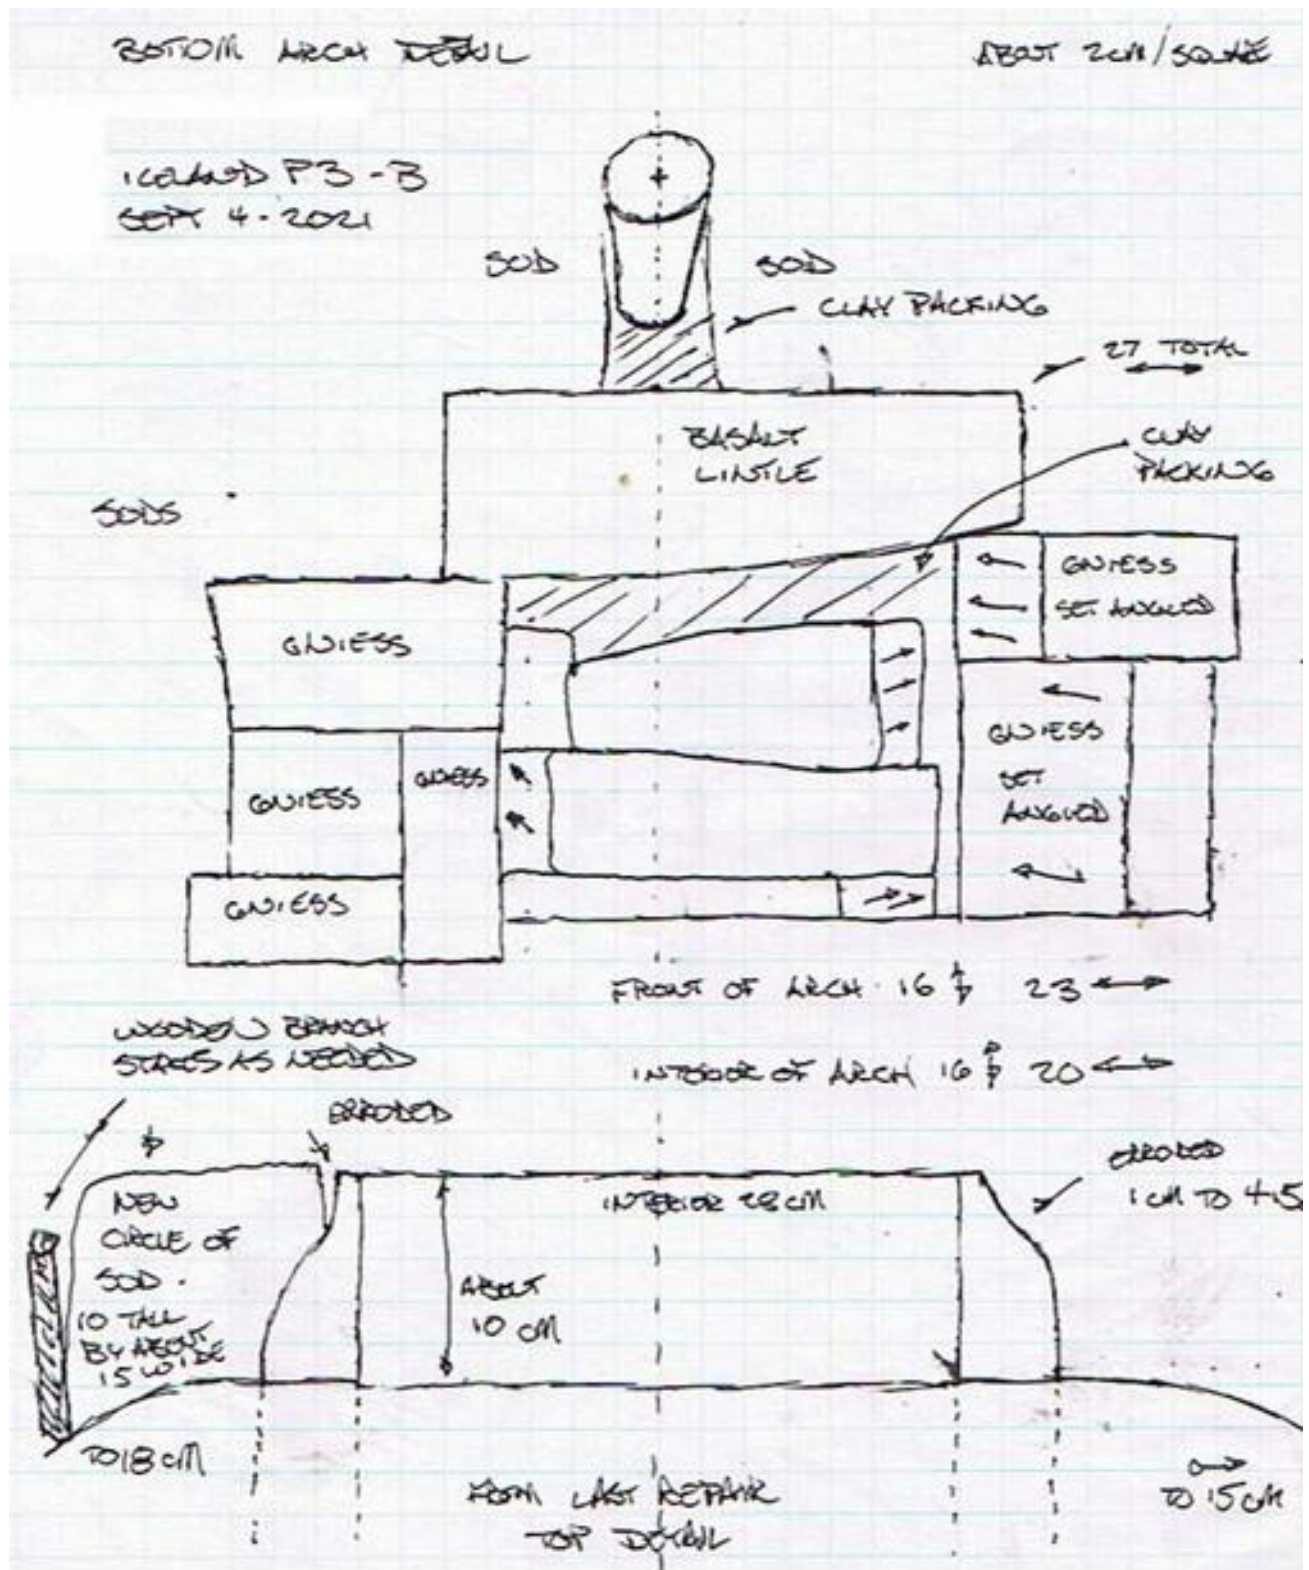 BOTTOM ARCH DETAIL
ABOUT 2CM/SQUARE
ICELAND P3-B
SEPT 4-2021
SOD
SOD
CLAY PACKING
27 TOTAL
BASALT
LINTLE
CLAY
PACKING
SODS
GNIESS
SET ANGLED
GNIESS
GNIESS
SET
ANGLED
GNIESS
GNIESS
GNIESS
FRONT OF ARCH 16 23
WOODEN BRANCH
STAKES AS NEEDED
INTERIOR OF ARCH 16 20
ERRODED
ERRODED
1 CM TO 4.5
NEW
CIRCLE OF
SOD.
10 TALL
BY ABOUT
15 WIDE
INTERIOR 28 CM
ABOUT
10 CM
TO 18 CM
FROM LAST REPAIR
TOP DETAIL
TO 15 CM